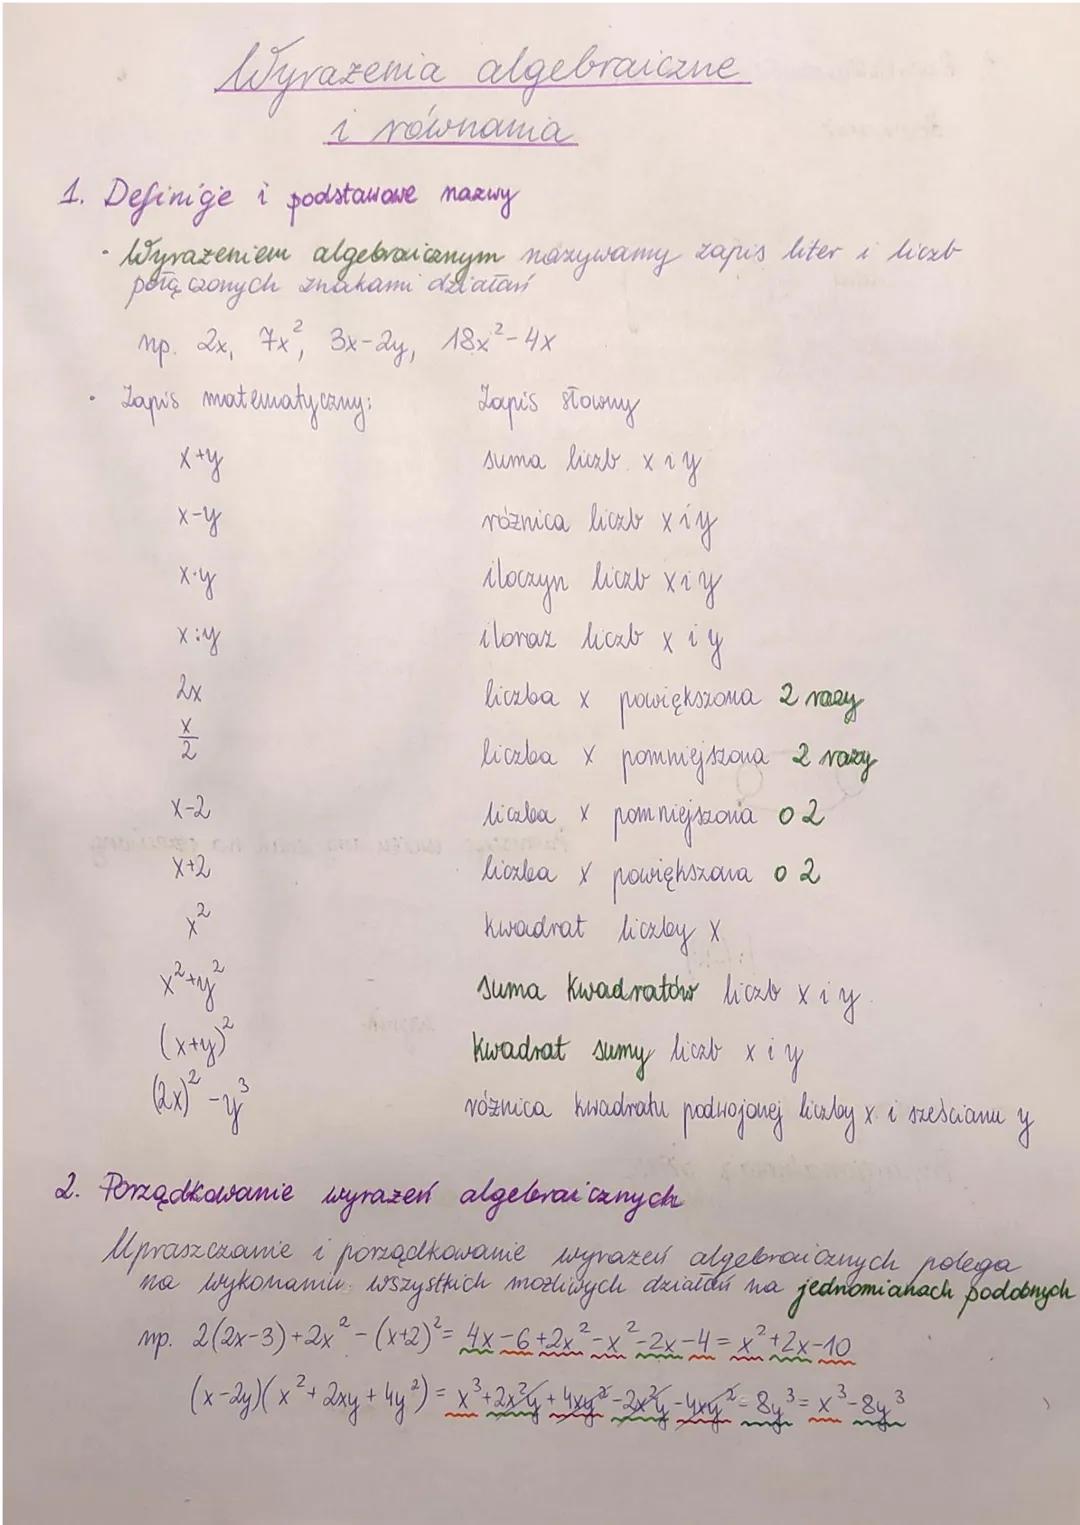 Wyrażenia algebraiczne
i równania
1. Definicje i podstawowe nazwy
· Wyrażeniem algebraicznym nazywamy zapis liter i liczb
połączonych znakami działań
np. 2x, 7x², 3x-2y, 18x²-4x
· Zapis matematyczny: Zapis słowny
x+y suma liczb x i y
x-y różnica liczb x i y
x·y iloczyn liczb x i y
x:y iloraz liczb x i y
2x liczba x powiększona 2 razy
x/2 liczba x pomniejszona 2 razy
x-2 liczba x pomniejszona o 2
x+2 liczba x powiększona o 2
x² kwadrat liczby x
x²+y² suma kwadratów liczb x i y
(x+y)² kwadrat sumy liczb x i y
(2x)²-y³ różnica kwadratu podwojonej liczby x i sześcianu y
2. Porządkowanie wyrażeń algebraicznych
Upraszczanie i porządkowanie wyrażeń algebraicznych polega
na wykonaniu wszystkich możliwych działań na jednomianach podobnych
np. 2(2x-3)+2x²-(x+2)²= 4x-6+2x²-x²-2x-4=x²+2x-10
(x-2y)(x²+2xy+4y²)= x³+2x²y+4xy²-2x²y-4xy²-8y³=x³-8y³